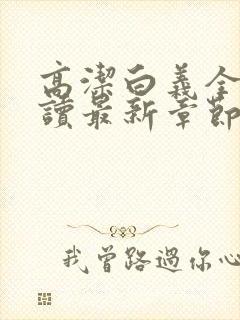 高潔白義全
讀最新章節
我曾路過你心